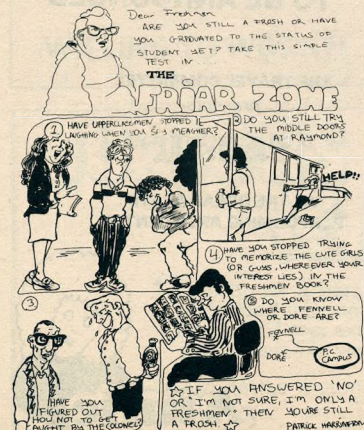 Dear Freshmen
ARE YOU STILL A FROSH OR HAVE
YOU GRADUATED TO THE STATUS OF
STUDENT YET? TAKE THIS SIMPLE
TEST IN
THE
FRIAR ZONE
1 HAVE UPPERCLASSMEN STOPPED
LAUGHING WHEN YOU SAY MEAGHER?
2 DO YOU STILL TRY
THE MIDDLE DOORS
AT RAYMOND?
HELP!!
3
HAVE YOU
FIGURED OUT
HOW NOT TO GET
CAUGHT BY THE COLONEL?
4 HAVE YOU STOPPED TRYING
TO MEMORIZE THE CUTE GIRLS
(OR GUYS, WHEREVER YOUR
INTEREST LIES) IN THE
FRESHMEN BOOK?
5 DO YOU KNOW
WHERE FENNELL
OR DORE ARE?
FENNELL
DORE
P.C.
CAMPUS
IF YOU ANSWERED 'NO'
OR 'I'M NOT SURE, I'M ONLY A
FRESHMEN" THEN YOU'RE STILL
A FROSH.
PATRICK HARRINGTON